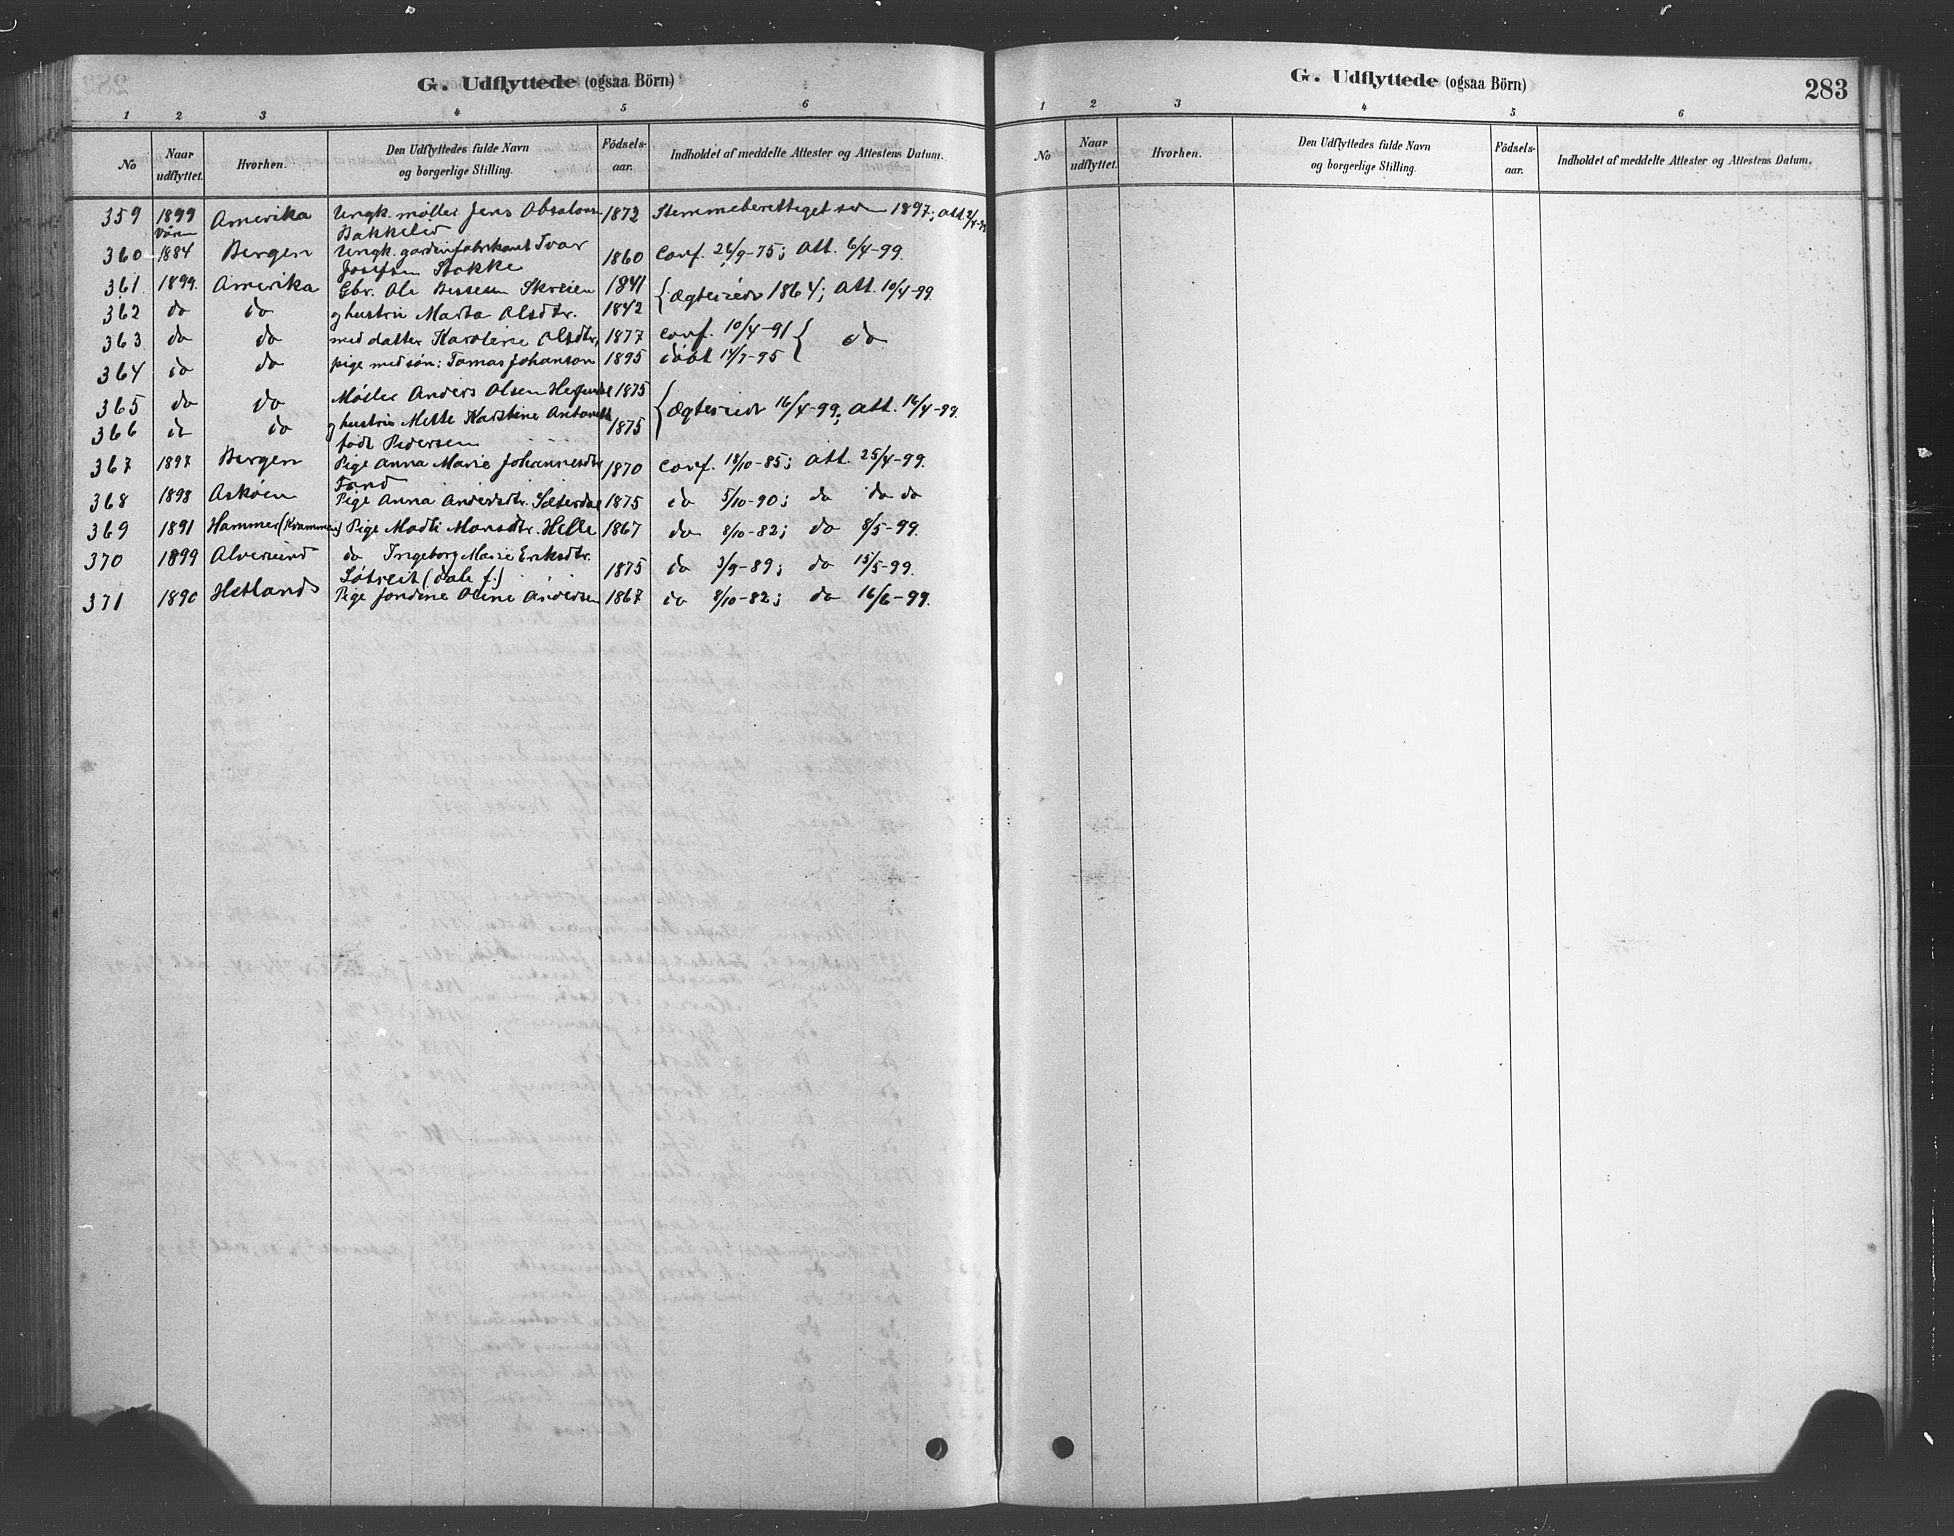 G. Udflyttede (ogsaa Börn)
1 2 3 4 5 6
No Naar udflyttet. Hvorhen. Den Udflyttedes fulde Navn og borgerlige Stilling. Födsels-aar. Indholdet af meddelte Attester og Attestens Datum.
359 1899 Amerika Ungk. møller Jens Absalons 1872 Stemmeberettiget sen 1897; att.
Våren Bakkelid
360 1884 Bergen Ungk. gardinfabrikant Ivar
Josefsen Stokke 1860 Conf. 26/9-75; att. 6/4-99.
361 1899. Amerika Gbr. Ole Skreien 1841 { Ægteviede 1864; att. 10/4-99.
362 do do ghustru Marta Olsdtr. 1842
363 do do med datter Karoline Olsdtr, 1877 conf. 10/4-91 { do
364 do do pige med søn: Tomas Johanson 1895 døbt 14/7-95
365 do do Møller Anders Olsen 1875 { Ægteviede 16/4-99; att. 16/4-99.
366 do do ghustru Mette Karstine 1875
født Pedersen
367 1897 Bergen Pige Anna Marie Johannesdtr 1870 conf. 18/10-85; att. 25/4-99.
368 1898 Askøen Pige Anna Andersdtr. Sæterdal 1875 do 5/10-90; do do do
369 1891 Hammer Pige Madli Monsdtr. Helle 1867 do 8/10-82; do 8/5-99.
370 1899 Alversund do Ingeborg Marie Eriksdtr.
Søtreit (dale f.) 1875 do 3/9-89; do 15/5-99.
371 1890 Hetlands Pige Jondine Oline Andersen 1867 do 8/10-82; do 16/6-99.
G. Udflyttede (ogsaa Börn) 283
1 2 3 4 5 6
No Naar udflyttet. Hvorhen. Den Udflyttedes fulde Navn og borgerlige Stilling. Födsels-aar. Indholdet af meddelte Attester og Attestens Datum.